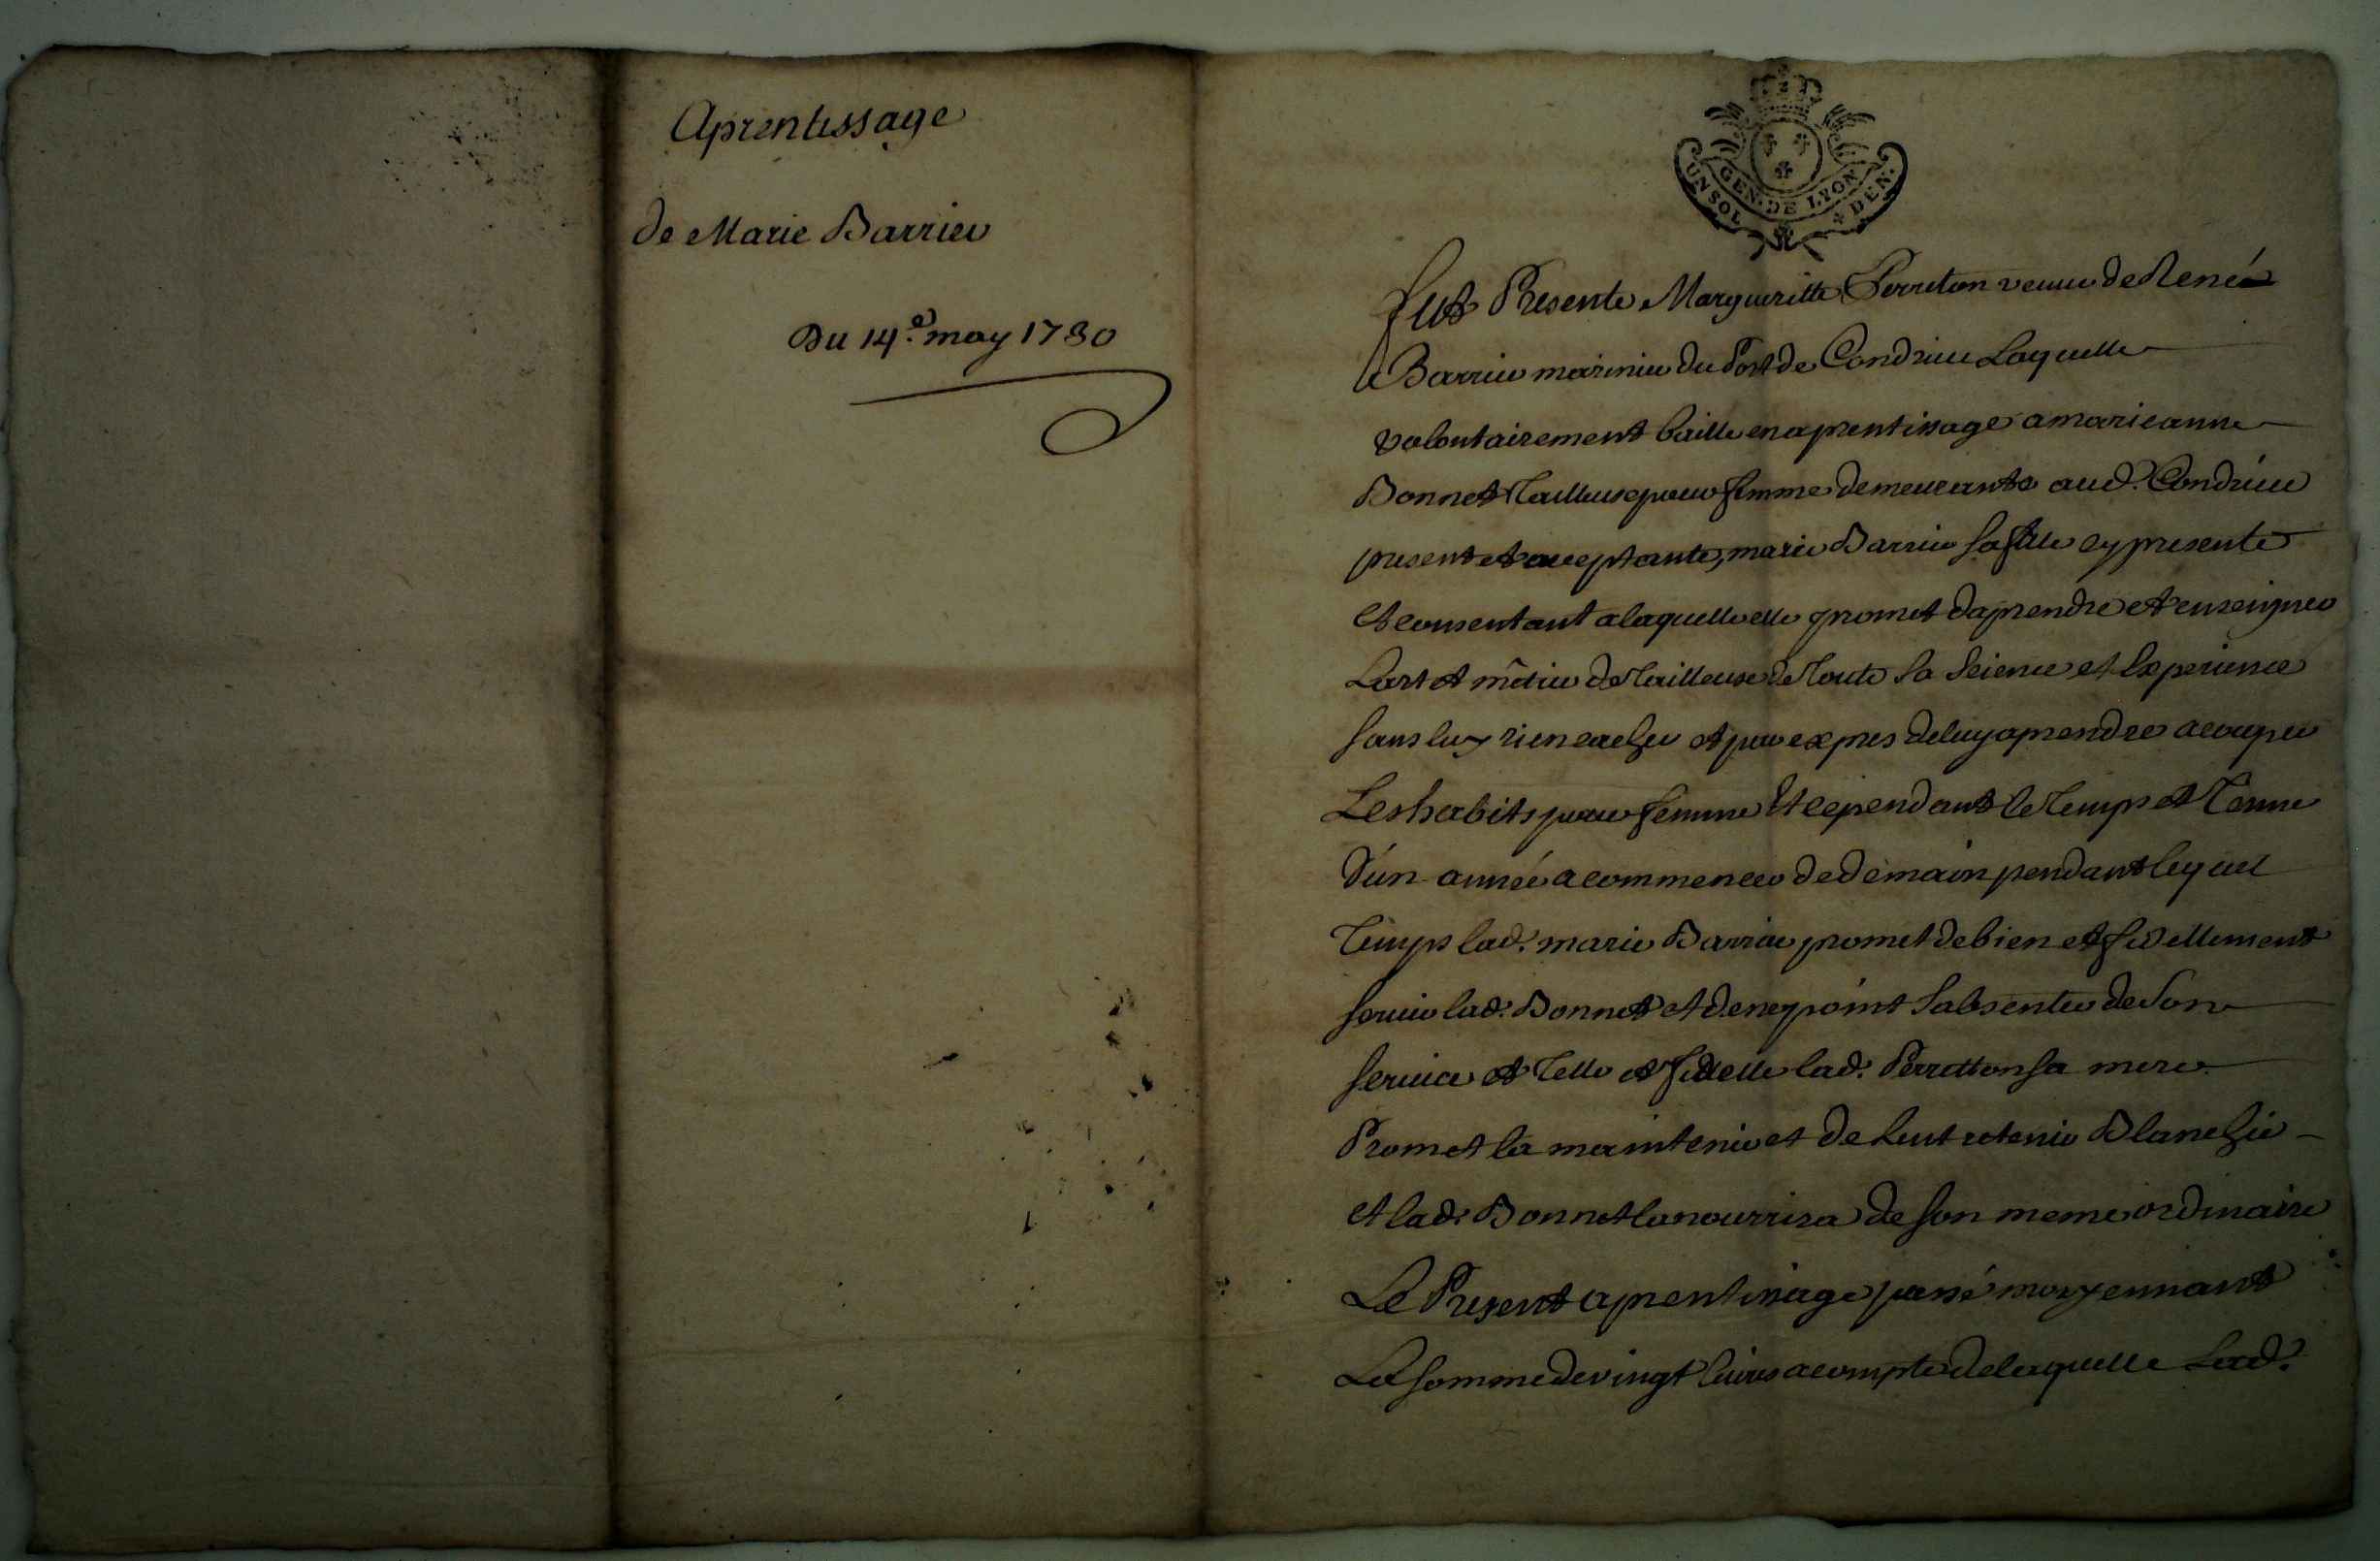 Aprentissage
de Marie Barrier
Du 14.e may 1730
GEN. DE LYON
UN SOL DEN.
Fut Presente Margueritte Perreton veuue de René
Barrier marinier du Port de Condrieu Laquelle
volontairement baille en aprentissage a marieanne
Bonnet Tailleuse pour femme demeurante aud. Condrieu
present et aceptante, marie Barrier sa fille cy presente
et consentant a laquelle elle promet daprendre et enseigner
Lart et mêtier de Tailleuse de Toute sa Science et Experience
sans luy rien cacher et par expres de luy aprendre a couper
Les habits pour femme Et ce pendant le Temps et Terme
d'un année a commencer de demain pendant lequel
Temps lad. marie Barrier promet de bien et fidellement
seruir lad. Bonnet et de ne point Sabsenter de Son
seruice et Telle et fidelle lad. Perretton sa mere
Promet la maintenir et de Lentretenir Blanchir
et lad. Bonnet la nourrira de son meme ordinaire
Le Present aprentissage passé moyennant
La somme de vingt liures a compte de laquelle Lad.